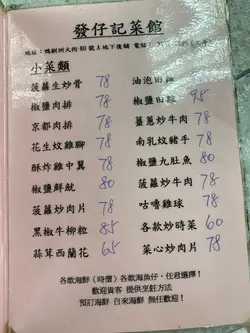 發仔記菜館
地址：鴨脷洲大街80號A地下後鋪 電話：
小菜類
菠蘿生炒骨 78
椒鹽肉排 78
京都肉排 78
花生炆雞腳 78
酥炸雞中翼 78
椒鹽鮮魷 80
菠蘿炒肉片 78
黑椒牛柳粒 85
蒜茸西蘭花 65
油泡田雞
椒鹽田雞 95
薑蔥炒牛肉 78
南乳炆豬手 78
椒鹽九肚魚 80
菠蘿炒牛肉 78
咕嚕雞球 78
各款炒時菜 60
菜心炒肉片 78
各款海鮮（時價）各款海魚仔，任君選擇！
歡迎貴客 提供烹飪方法
預訂海鮮 自來海鮮 無任歡迎！